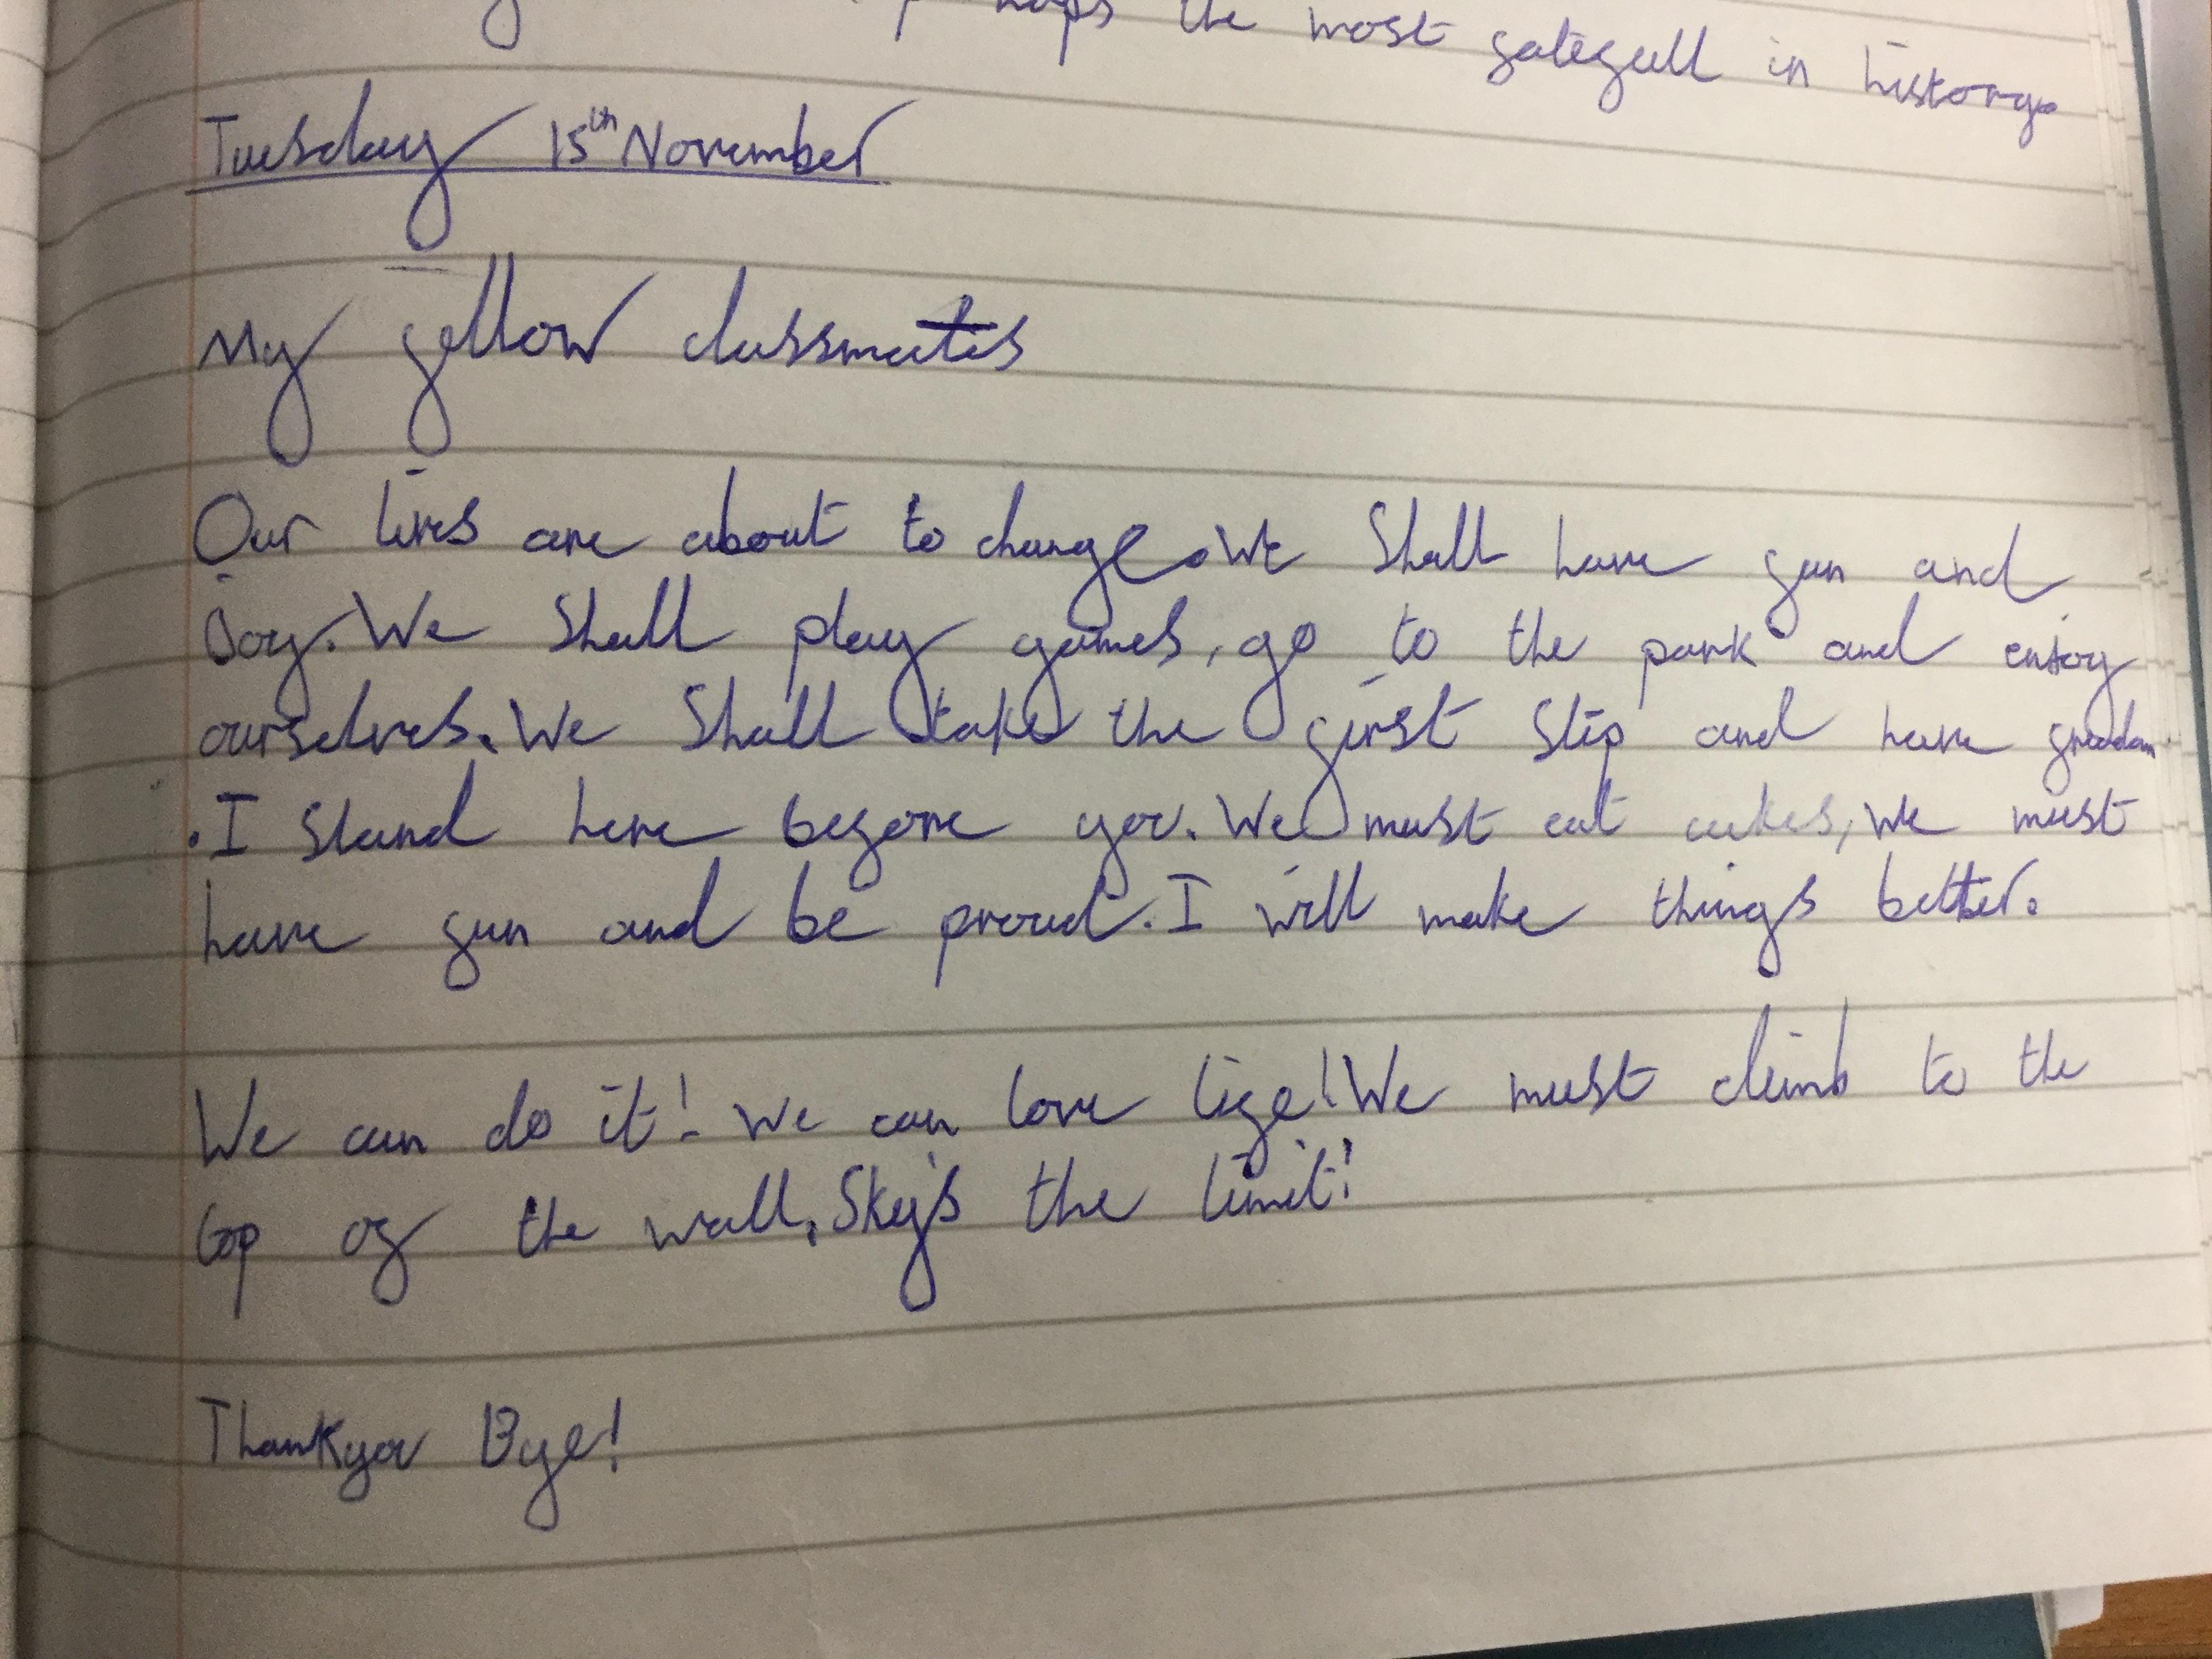 the most fatefull in history.
Tuesday 15th November
My fellow classmates
Our lives are about to change. We Shall have fun and
Joy. We Shall play games, go to the park and enjoy
ourselves. We Shall take the first Step and have freedom
. I Stand here before you. We must eat cakes, we must
have fun and be proud. I will make things better.
We can do it! We can love life! We must climb to the
top of the wall. Sky's the limit!
Thankyou Bye!